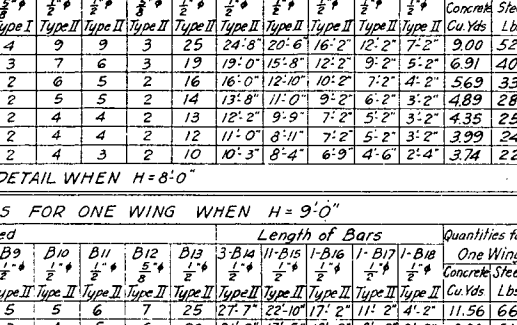 5/8"ф 1/2"ф 1/2"ф 1/2"ф 1/2"ф 1/2"ф 1/2"ф 1/2"ф 1/2"ф 1/2"ф Concrete Stee
Type I Type II Type II Type II Type II Type II Type II Type II Type II Type II Cu.Yds Lb
4 9 9 3 25 24'-8" 20'-6" 16'-2" 12'-2" 7'-2" 9.00 52
3 7 6 3 19 19'-0" 15'-8" 12'-2" 9'-2" 5'-2" 6.91 40
2 6 5 2 16 16'-0" 12'-10" 10'-2" 7'-2" 4'-2" 5.69 33
2 5 5 2 14 13'-8" 11'-0" 9'-2" 6'-2" 3'-2" 4.89 28
2 4 4 2 13 12'-2" 9'-9" 7'-2" 5'-2" 3'-2" 4.35 25
2 4 4 2 12 11'-0" 8'-11" 7'-2" 5'-2" 3'-2" 3.99 24
2 4 3 2 10 10'-3" 8'-4" 6'-9" 4'-6" 2'-4" 3.74 22
DETAIL WHEN H=8'-0"
S FOR ONE WING WHEN H=9'-0"
ed Length of Bars Quantities fo
B9 B10 B11 B12 B13 3-B14 11-B15 1-B16 1-B17 1-B18 One Wing
1/2"ф 1/2"ф 1/2"ф 5/8"ф 1/2"ф 1/2"ф 1/2"ф 1/2"ф 1/2"ф 1/2"ф Concrete Stee
Type II Type II Type II Type II Type II Type II Type II Type II Type II Type II Cu.Yds Lbs
5 5 6 7 25 27'-7" 22'-10" 17'-2" 11'-2" 4'-2" 11.56 66